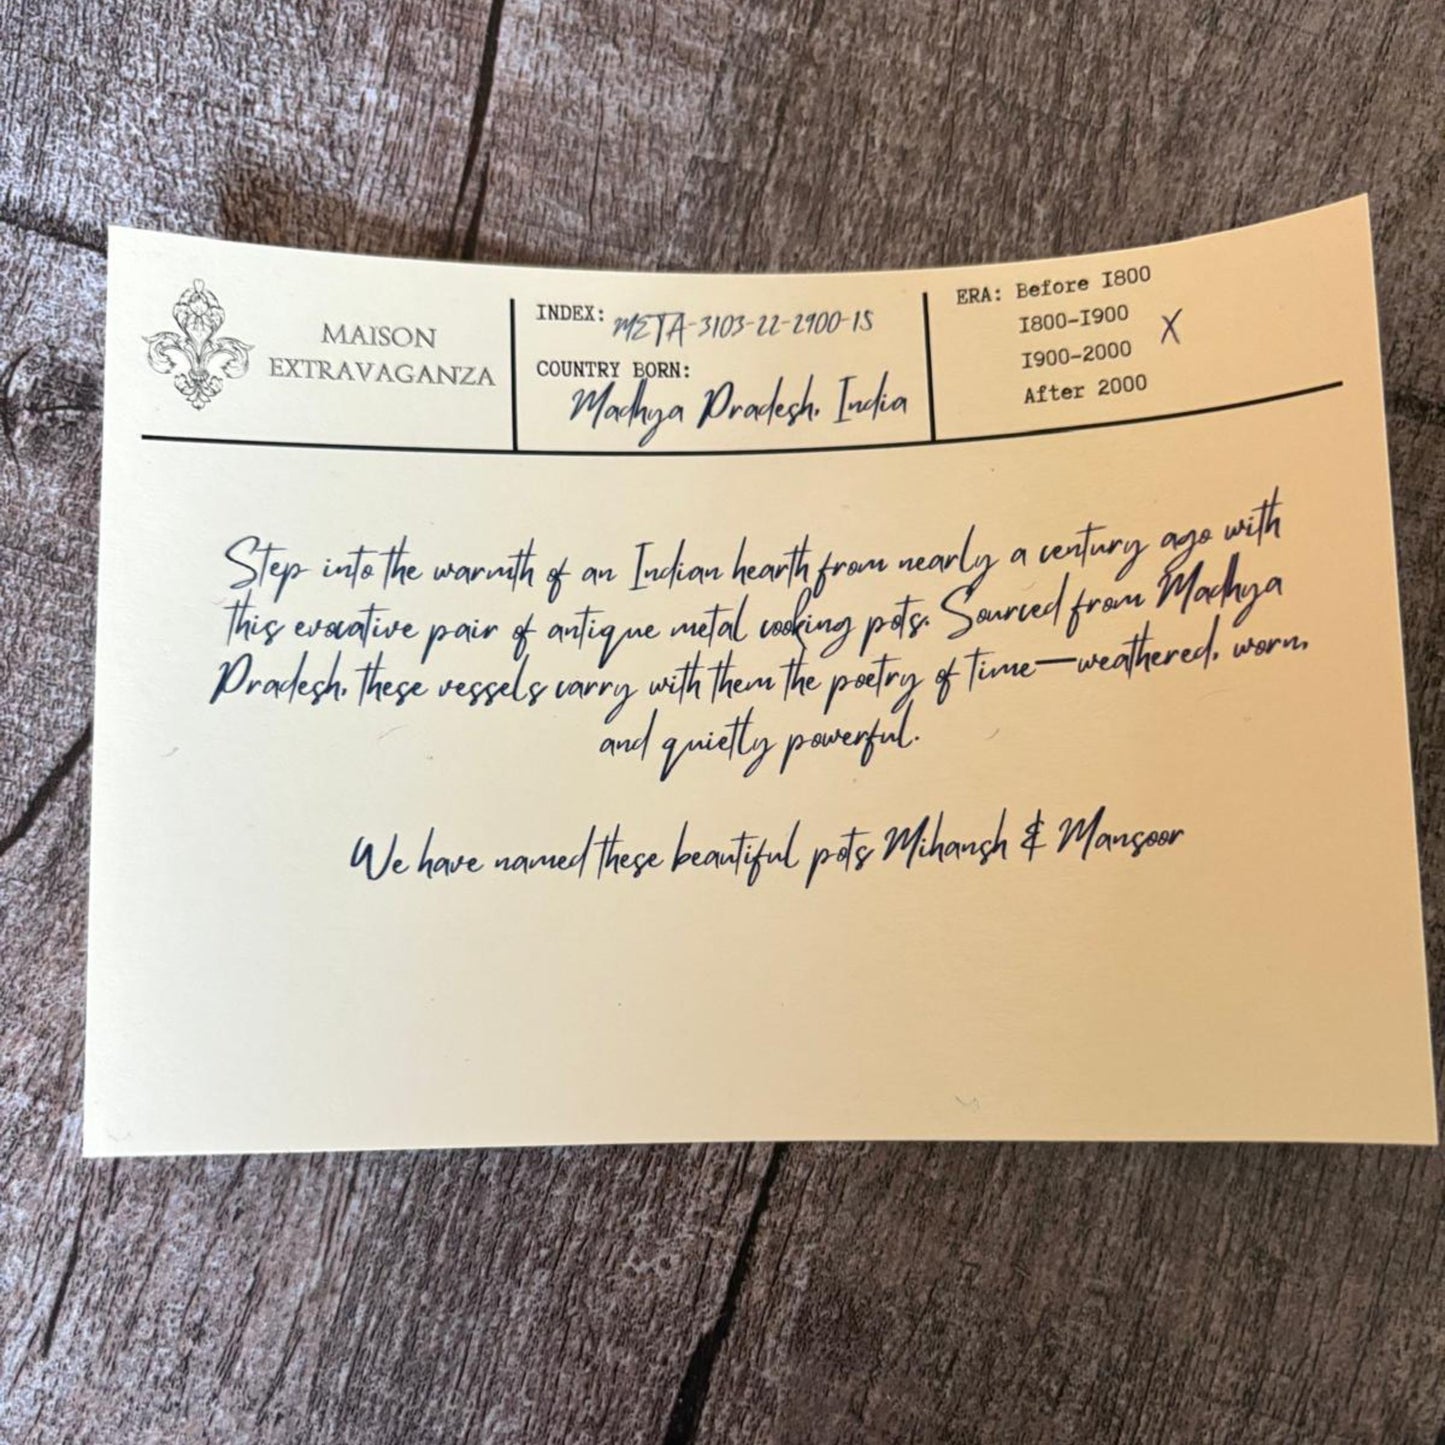 MAISON
EXTRAVAGANZA
INDEX: META-3103-22-2900-15
COUNTRY BORN:
Madhya Pradesh, India
ERA: Before 1800
1800-1900 X
1900-2000
After 2000
Step into the warmth of an Indian hearth from nearly a century ago with
this evocative pair of antique metal cooking pots. Sourced from Madhya
Pradesh, these vessels carry with them the poetry of time—weathered, worn,
and quietly powerful.
We have named these beautiful pots Mihansh & Mansoor